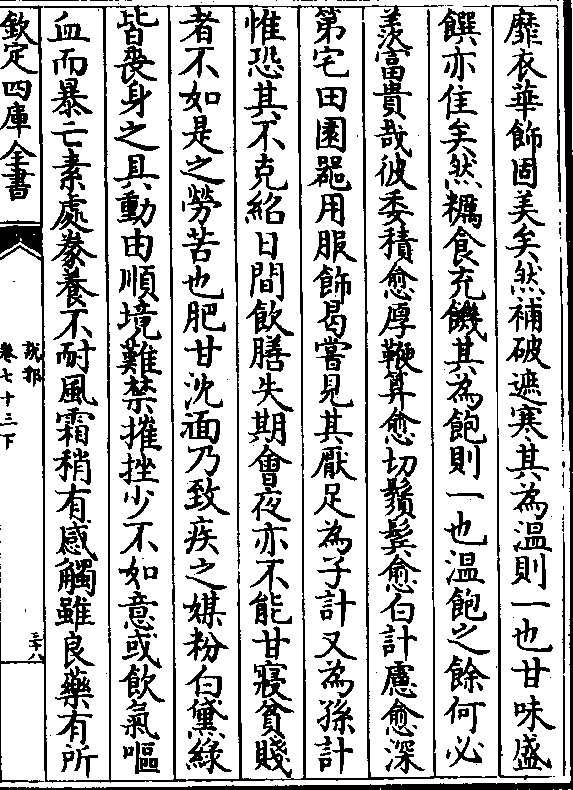 靡衣華飾固美矣然補破遮寒其為溫則一也甘味盛
饌亦佳矣然糲食充饑其為飽則一也溫飽之餘何必
羨富貴哉彼委積愈厚鞭算愈切鬚髮愈白計慮愈深
第宅田園器用服飾曷嘗見其厭足為子計又為孫計
惟恐其不克紹日間飲膳失期㑹夜亦不能甘寢貧賤
者不如是之勞苦也肥甘沈湎乃致疾之媒粉白黛綠
皆喪身之具動由順境難禁摧挫少不如意或飲氣嘔
血而暴亡素處豢養不耐風霜稍有感觸雖良藥有所
欽定四庫全書
說郛
卷七十三下
三十八